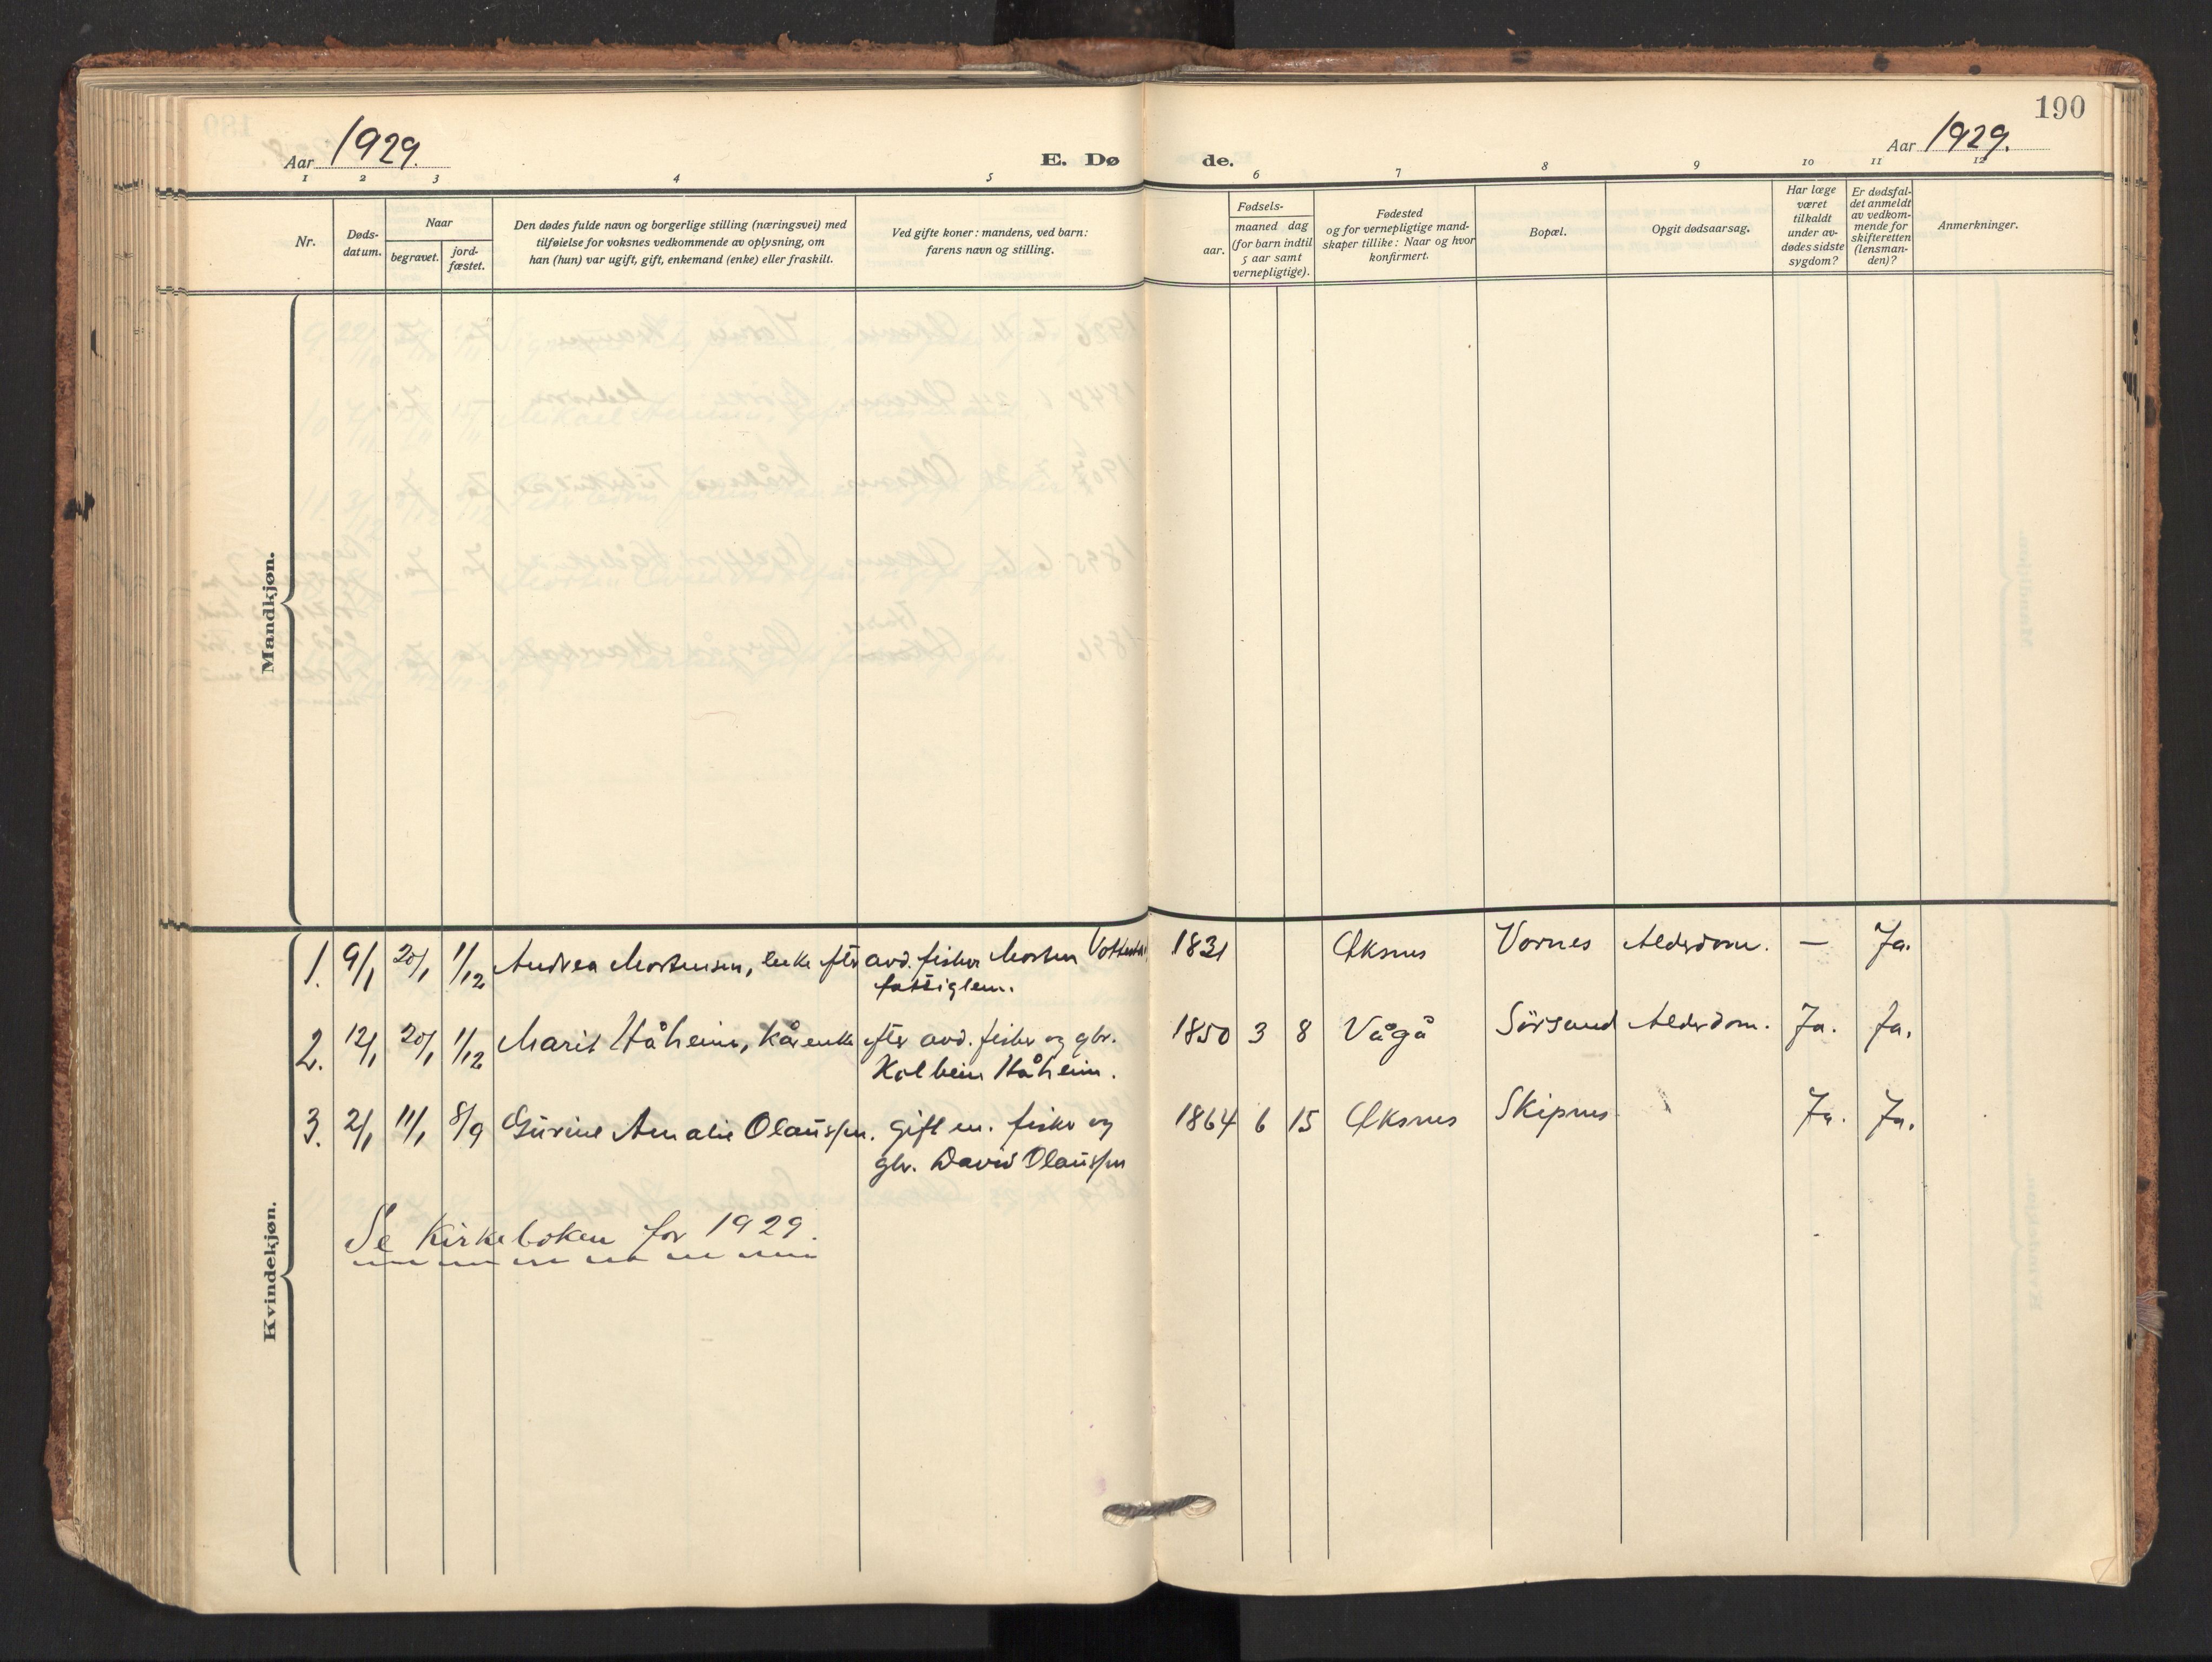 190
Aar 1929.
E. Døde.
Aar 1929.
1 2 3 4 5 6 7 8 9 10 11 12
Nr.
Døds-
datum.
Naar
begravet.
jord-
fæstet.
Den dødes fulde navn og borgerlige stilling (næringsvei) med
tilføielse for voksnes vedkommende av oplysning, om
han (hun) var ugift, gift, enkemand (enke) eller fraskilt.
Ved gifte koner: mandens, ved barn:
farens navn og stilling.
Fødsels-
aar.
maaned dag
(for barn indtil
5 aar samt
vernepligtige).
Fødested
og for vernepligtige mand-
skaper tillike: Naar og hvor
konfirmert.
Bopæl.
Opgit dødsaarsag.
Har læge
været
tilkaldt
under av-
dødes sidste
sygdom?
Er dødsfal-
det anmeldt
av vedkom-
mende for
skifteretten
(lensman-
den)?
Anmerkninger.
Mandkjøn.
Kvindekjøn.
1. 9/1 20/1 11/12 Andrea Mortensen, enke efter avd. fisker Morten 1831 Øksnes Vornes Alderdom. — Ja.
fattiglem.
2. 12/1 20/1 11/12 Marit Håheim, kårenke efter avd. fisker og gbr. 1850 3 8 Vågå Sörsand Alderdom. Ja. Ja.
Kolbein Håheim.
3. 2/1 11/1 8/9 Gurine Amalie Olaussen. gift m. fisker og 1864 6 15 Øksnes Skipnes Ja. Ja.
gbr. David Olaussen
Se Kirkeboken for 1929.